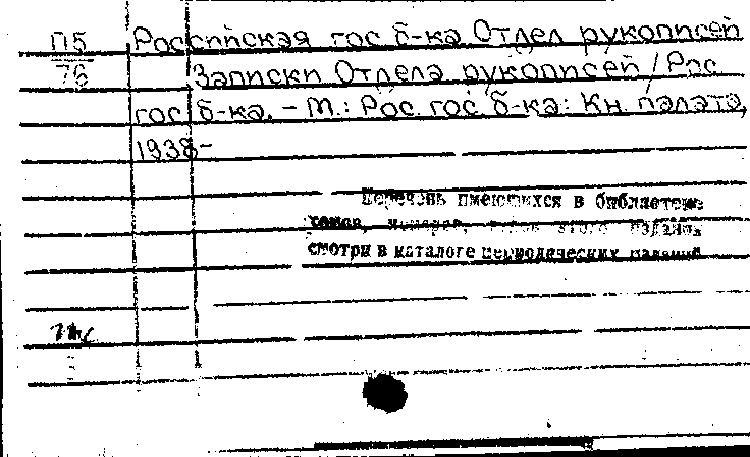 П5
76
Российская гос б-ка Отдел рукописей
Записки Отдела рукописей / Рос.
гос б-ка. – М.: Рос. гос б-ка: Кн. палата,
1938-
Перечень имеющихся в библиотеке
томов, номеров, этого издания
смотри в каталоге периодических изданий